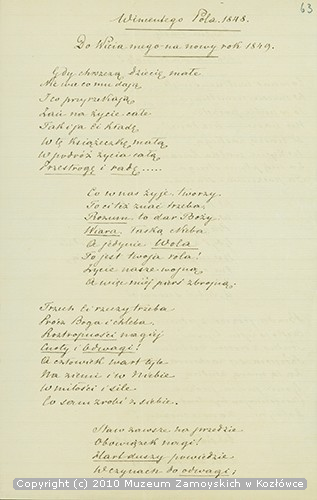 63
Wincentego Pola. 1848.
Do Wicia mego na nowy rok 1849.
Gdy chrzczą dziecię małe
Nie wie co mu dają
I co przyrzekają
Zaś na życie całe
Tak i ja Ci kładę
W tę książeczkę małą
W podróż życia całą
Przestrogę i radę .....
Co w nas żyje tworzy
To ci też znać trzeba.
Rozum to dar Boży
Wiara łaską Nieba
A jedynie Wola
To jest twoja rola!
Życie nasze wojną
A więc miej pierś zbrojną.
Trzech Ci rzeczy trzeba
Prócz Boga i chleba.
Roztropności nagiej
Cnoty i Odwagi!
A człowiek wart tyle
Na ziemi i w Niebie
W miłości i sile
Co sam zrobi z siebie.
Staw zawsze na przedzie
Obowiązek nagi!
Hart duszy powiedzie
W czynach do odwagi,
Copyright (c) 2010 Muzeum Zamoyskich w Kozłówce